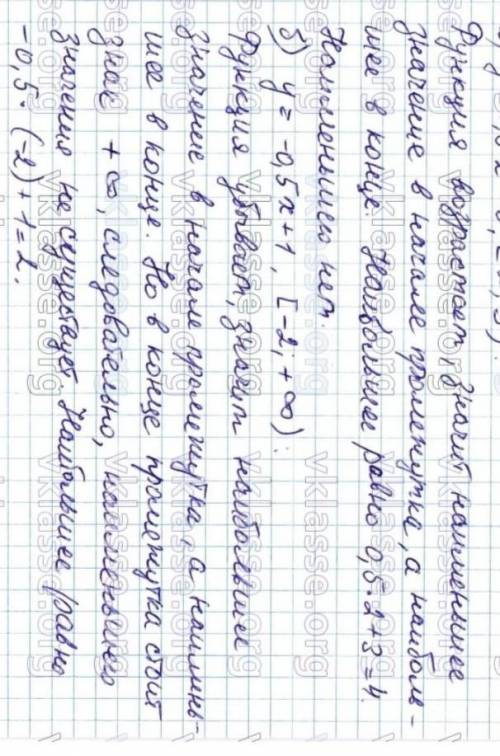 Функция возрастает, значит наименьшее
значение в начале промежутка, а наиболь-
шее в конце. Наибольшее равно 0,5·2+3=4.
Наименьшего нет.
5) y = -0,5x+1, [-2; +∞):
Функция убывает, значит наибольшее
значение в начале промежутка, а наимень-
шее в конце. Но в конце промежутка стоит
знак +∞, следовательно, наименьшего
значения не существует. Наибольшее равно
-0,5·(-2)+1=2.
vklasse.org